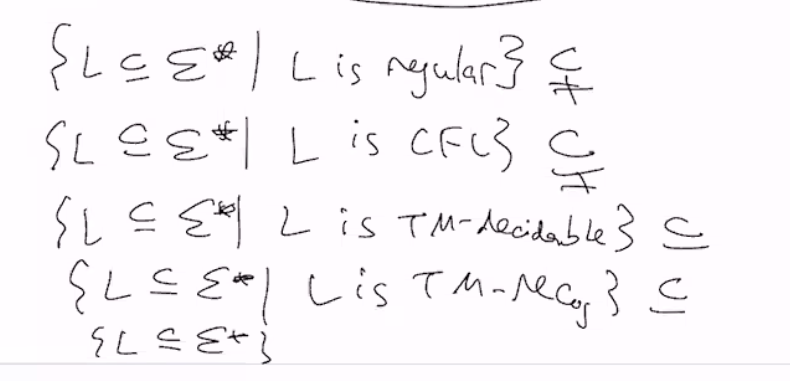 {L ⊆ Σ* | L is regular} ⊊
{L ⊆ Σ* | L is CFL} ⊊
{L ⊆ Σ* | L is TM-decidable} ⊆
{L ⊆ Σ* | L is TM-recog} ⊆
{L ⊆ Σ*}